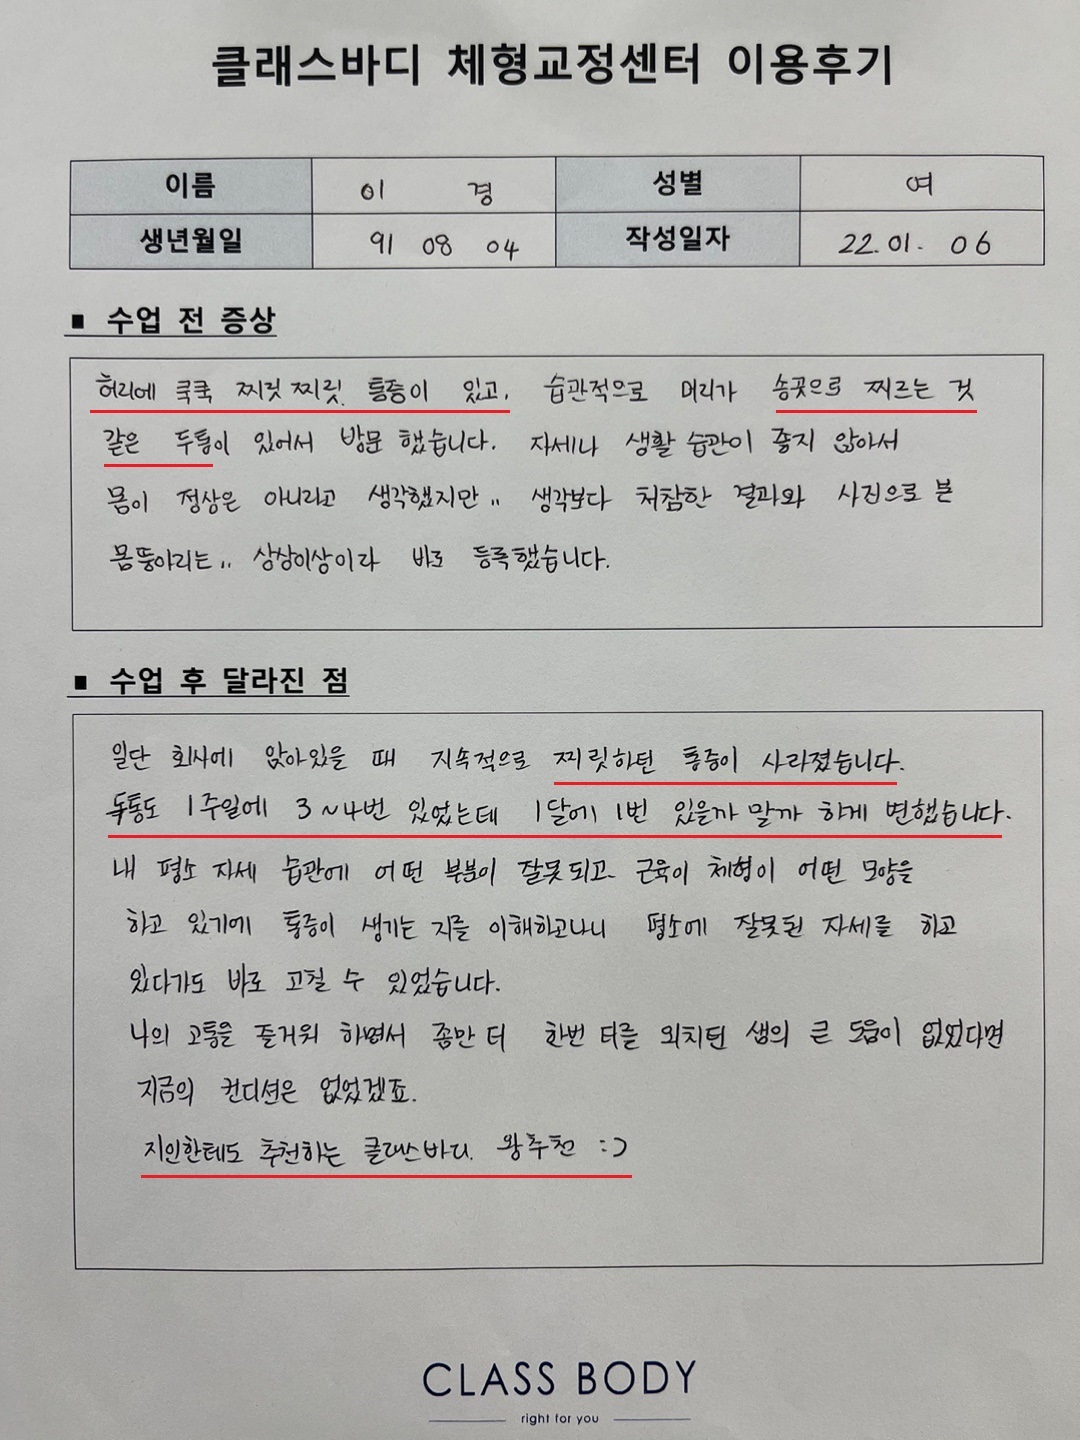 클래스바디 체형교정센터 이용후기
이름 이 경 성별 여
생년월일 91 08 04 작성일자 22. 01. 06
■ 수업 전 증상
허리에 쿡쿡 찌릿찌릿 통증이 있고, 습관적으로 머리가 송곳으로 찌르는 것
같은 두통이 있어서 방문 했습니다. 자세나 생활 습관이 좋지 않아서
몸이 정상은 아니라고 생각했지만.. 생각보다 처참한 결과와 사진으로 본
몸뚱아리는.. 상상이상이라 바로 등록했습니다.
■ 수업 후 달라진 점
일단 회사에 앉아있을 때 지속적으로 찌릿하던 통증이 사라졌습니다.
두통도 1주일에 3~4번 있었는데 1달에 1번 있을까 말까 하게 변했습니다.
내 평소 자세 습관에 어떤 부분이 잘못되고. 근육이 체형이 어떤 모양을
하고 있기에 통증이 생기는 지를 이해하고나니 평소에 잘못된 자세를 하고
있다가도 바로 고칠 수 있었습니다.
나의 고통을 즐거워 하면서 좀만 더 한번 더를 외치던 쌤의 큰 도움이 없었다면
지금의 컨디션은 없었겠죠.
지인한테도 추천하는 클래스바디. 왕추천 :)
CLASS BODY
right for you